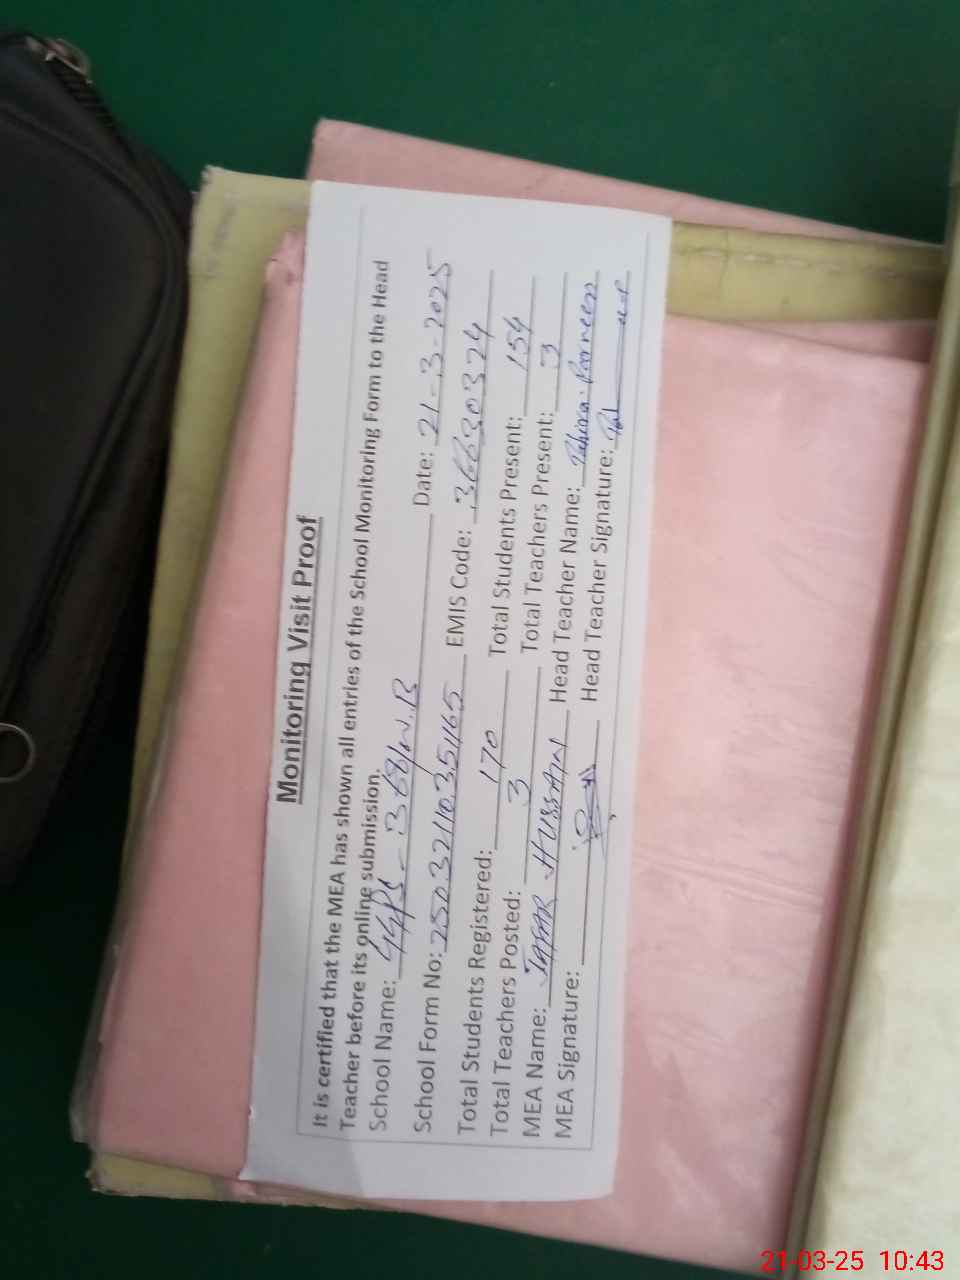 Monitoring Visit Proof
It is certified that the MEA has shown all entries of the School Monitoring Form to the Head
Teacher before its online submission.
School Name: GGPS - 368/W.B Date: 21-3-2025
School Form No: 25032110351165 EMIS Code: 36630324
Total Students Registered: 170 Total Students Present: 154
Total Teachers Posted: 3 Total Teachers Present: 3
MEA Name: JAFAR HUSSAIN Head Teacher Name: Tahira Parveen
MEA Signature: Head Teacher Signature:
21-03-25 10:43